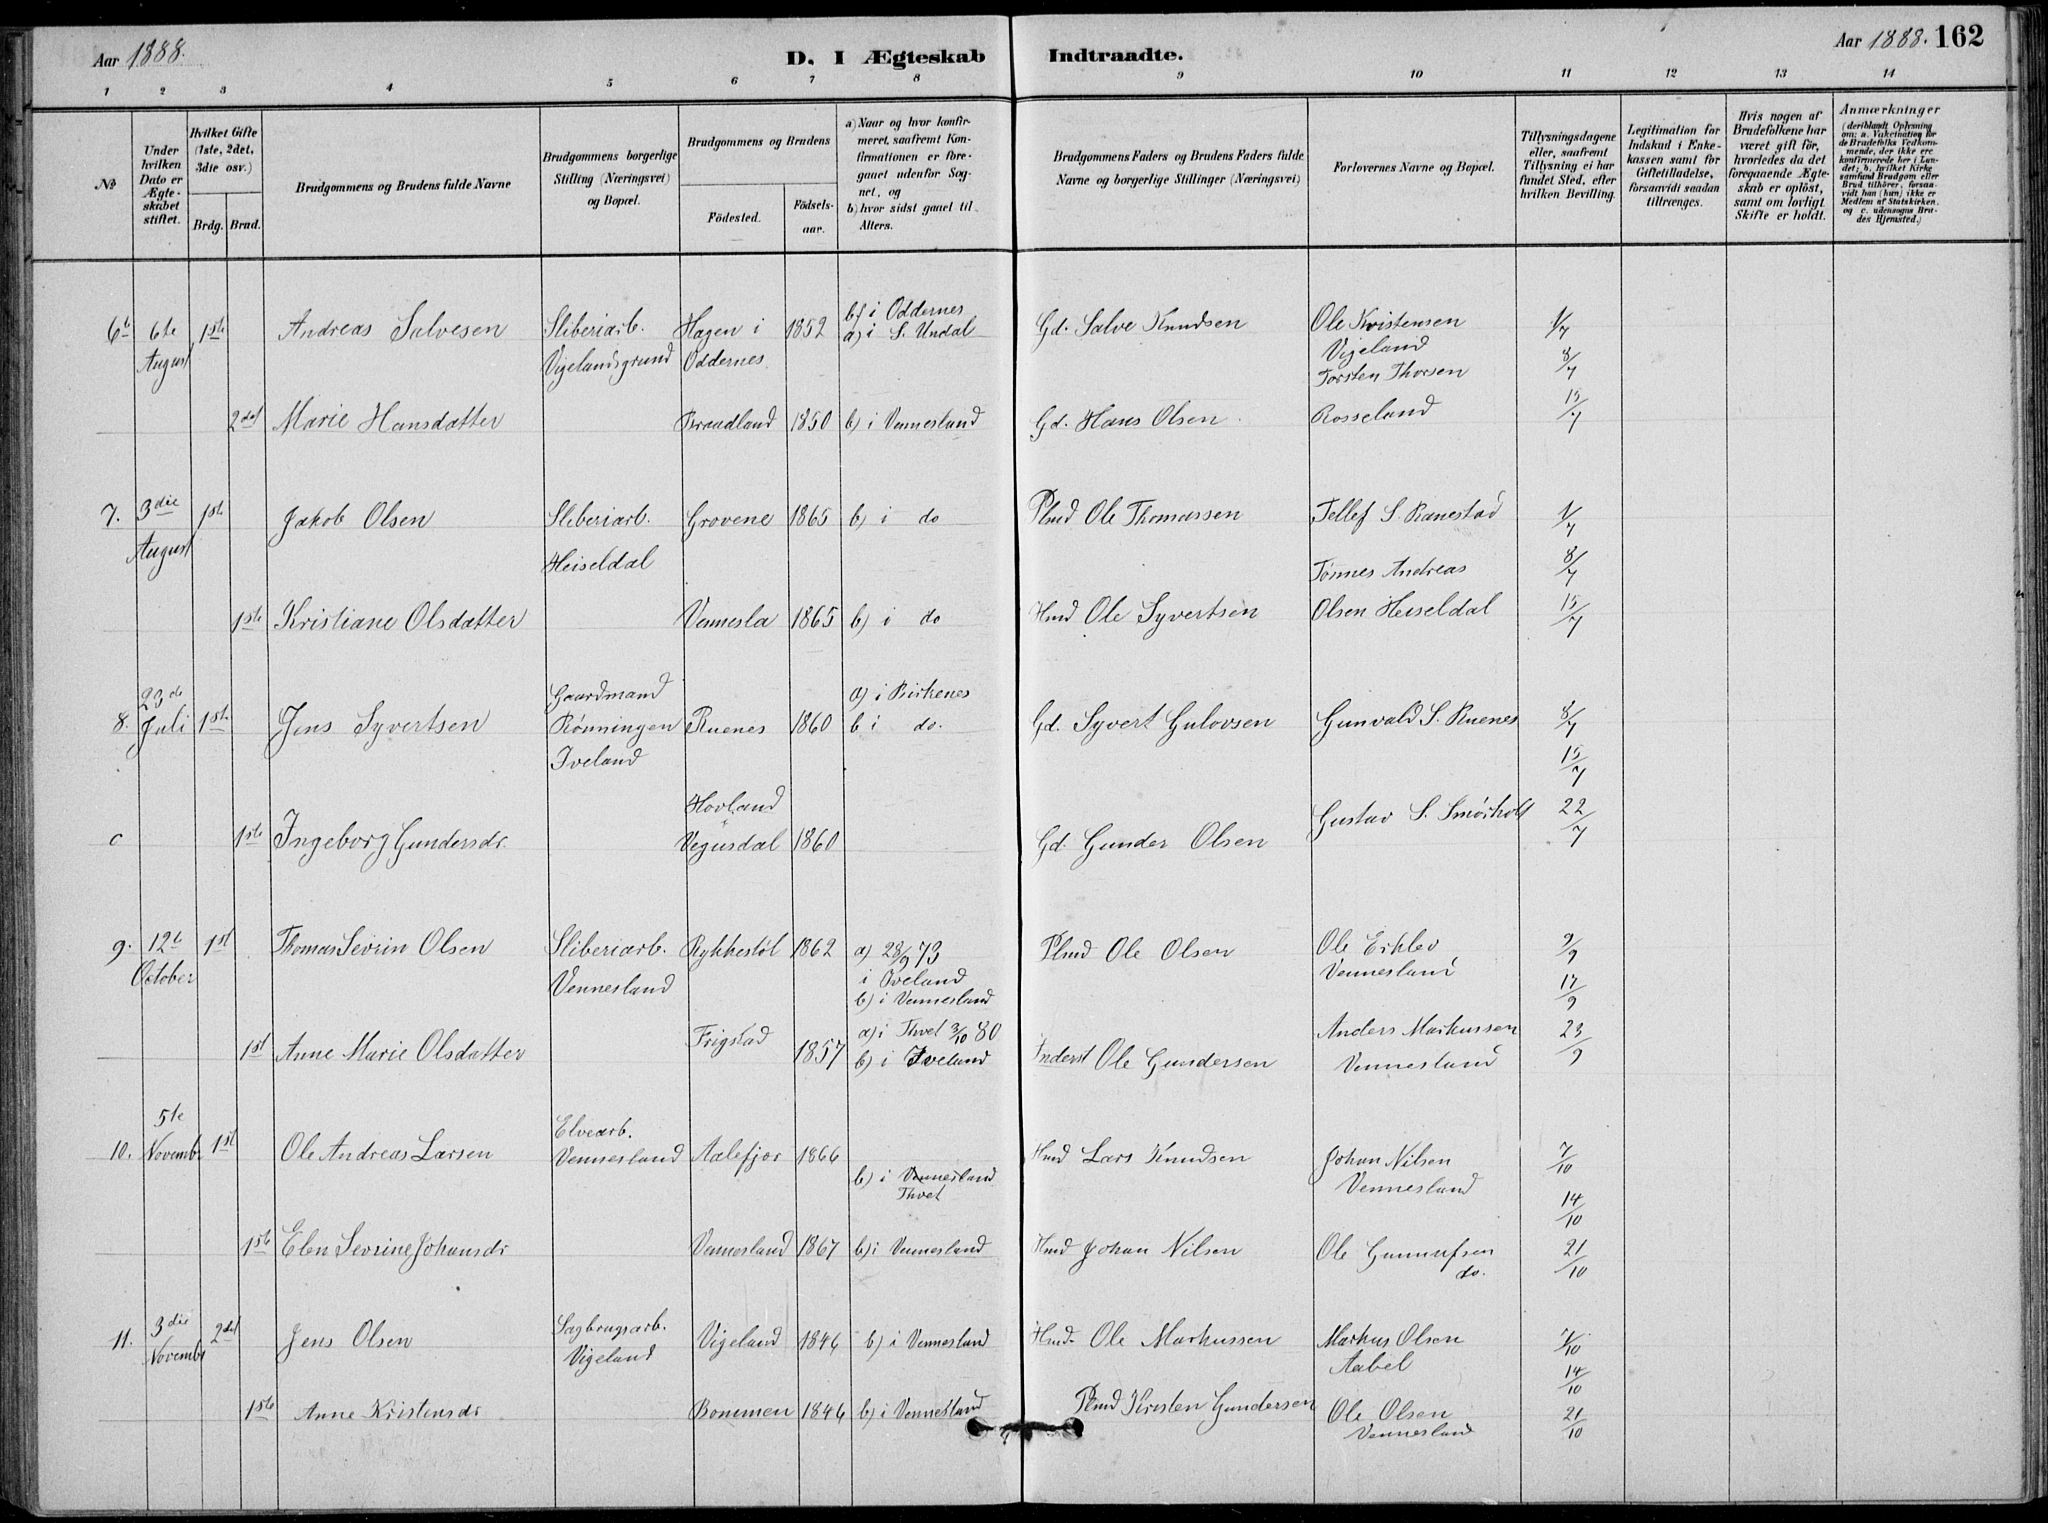 Aar 1888.
D. I Ægteskab Indtraadte.
Aar 1888. 162
1 2 3 4 5 6 7 8 9 10 11 12 13 14
№
Under hvilken Dato er Ægteskabet stiftet.
Hvilket Gifte (1ste, 2det, 3die osv.)
Brdg. Brud.
Brudgommens og Brudens fulde Navne
Brudgommens borgerlige Stilling (Næringsvei) og Bopæl.
Brudgommens og Brudens
Födested. Födselsaar.
a) Naar og hvor konfirmeret, saafremt Konfirmationen er foregaaet udenfor Sognet, og
b) hvor sidst gaaet til Alters.
Brudgommens Faders og Brudens Faders fulde Navne og borgerlige Stillinger (Næringsvei)
Forlovernes Navne og Bopæl.
Tillysningsdagene eller, saafremt Tillysning ei har fundet Sted, efter hvilken Bevilling.
Legitimation for Indskud i Enkekassen samt for Giftetilladelse, forsaavidt saadan tiltrænges.
Hvis nogen af Brudefolkene har været gift för, hvorledes da det foregaaende Ægteskab er oplöst, samt om lovligt Skifte er holdt.
Anmærkninger (deriblandt Oplysning om: a. Vakcination for de Brudefolks Vedkommende, der ikke ere konfirmerede her i Landet; b. hvilket Kirkesamfund Brudgom eller Brud tilhörer, forsaavidt han (hun) ikke er Medlem af Statskirken, og c. udensogns Brudes Hjemsted.)
6 6te August 1ste Andreas Salvesen Sliberiarb. Vigelandsgrund Hagen i Oddernes 1852 b) i Oddernes a) i S. Undal Gd. Salve Knudsen Ole Kristensen Vigeland Torsten Thorsen 1/7 8/7
2det Marie Hansdatter Braadland 1850 b) i Vennesland Gd. Hans Olsen Rosseland 15/7
7. 3die August 1ste Jakob Olsen Sliberiarb. Heiseldal Grovene 1865 b) i do Plmd Ole Thomassen Tellef S. Ranestad 1/7
Tönnes Andreas 8/7
1ste Kristiane Olsdatter Vennesla 1865 b) i do Hmd Ole Syvertsen Olsen Heiseldal 15/7
8. 23de Juli 1ste Jens Syvertsen Gaardmand Rønningen Iveland Ruenes 1860 a) i Birkenes b i do. Gd. Syvert Gulovsen Gunvald S. Ruenes 8/7 15/7
c 1ste Ingeborg Gundersdr. Hovland Vegusdal 1860 Gd. Gunder Olsen Gustav S. Smørholt 22/7
9. 12te October 1st Thomas Sevrin Olsen Sliberiarb. Vennesland Rykkestöl 1862 a) 28/9 73 i Iveland b) i Vennesland Plmd Ole Olsen Ole Erklev Vennesland 9/9 17/9
1st Anne Marie Olsdatter Frigstad 1857 a) i Thvet 3/10 80 b) i Iveland Inderst Ole Gundersen Anders Markussen Vennesland 23/9
10. 5te Novembr 1st Ole Andreas Larsen Elvearb. Vennesland Aalefjor 1866 b) i Vennesland Thvet Hmd Lars Knudsen Johan Nilsen Vennesland 7/10 14/10
1ste Elen Sevrine Johansdr Vennesland 1867 b) i Vennesland Hmd Johan Nilsen Ole Gunnufsen do. 21/10
11. 3die Novembr 2det Jens Olsen Sagbrugsarb. Vigeland Vigeland 1846 b) i Vennesland Hmd Ole Markussen Markus Olsen Aabel 7/10 14/10
1ste Anne Kristensdr Bommen 1846 b) i Vennesland Plmd Kristen Gundersen Ole Olsen Vennesland 21/10